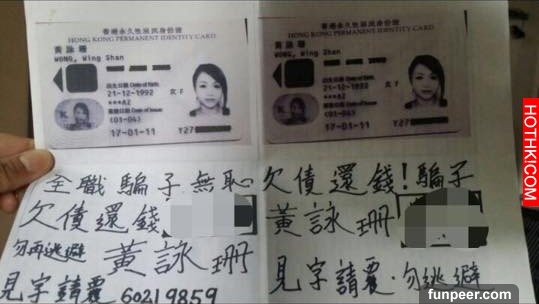 香港永久性居民身份證
HONG KONG PERMANENT IDENTITY CARD
黃詠珊
WONG, Wing Shan
出生日期 Date of Birth
21-12-1992
女 F
***AZ
簽發日期 Date of Issue
(01-04)
17-01-11
Y27
香港永久性居民身份證
HONG KONG PERMANENT IDENTITY CARD
黃詠珊
WONG, Wing Shan
出生日期 Date of Birth
21-12-1992
女 F
***AZ
簽發日期 Date of Issue
(01-04)
17-01-11
Y27
全職騙子無恥
欠債還錢
勿再逃避 黃詠珊
見字請覆 60219859
欠債還錢!騙子
黃詠珊
見字請覆·勿逃避
HOTHK!COM
funpeer.com